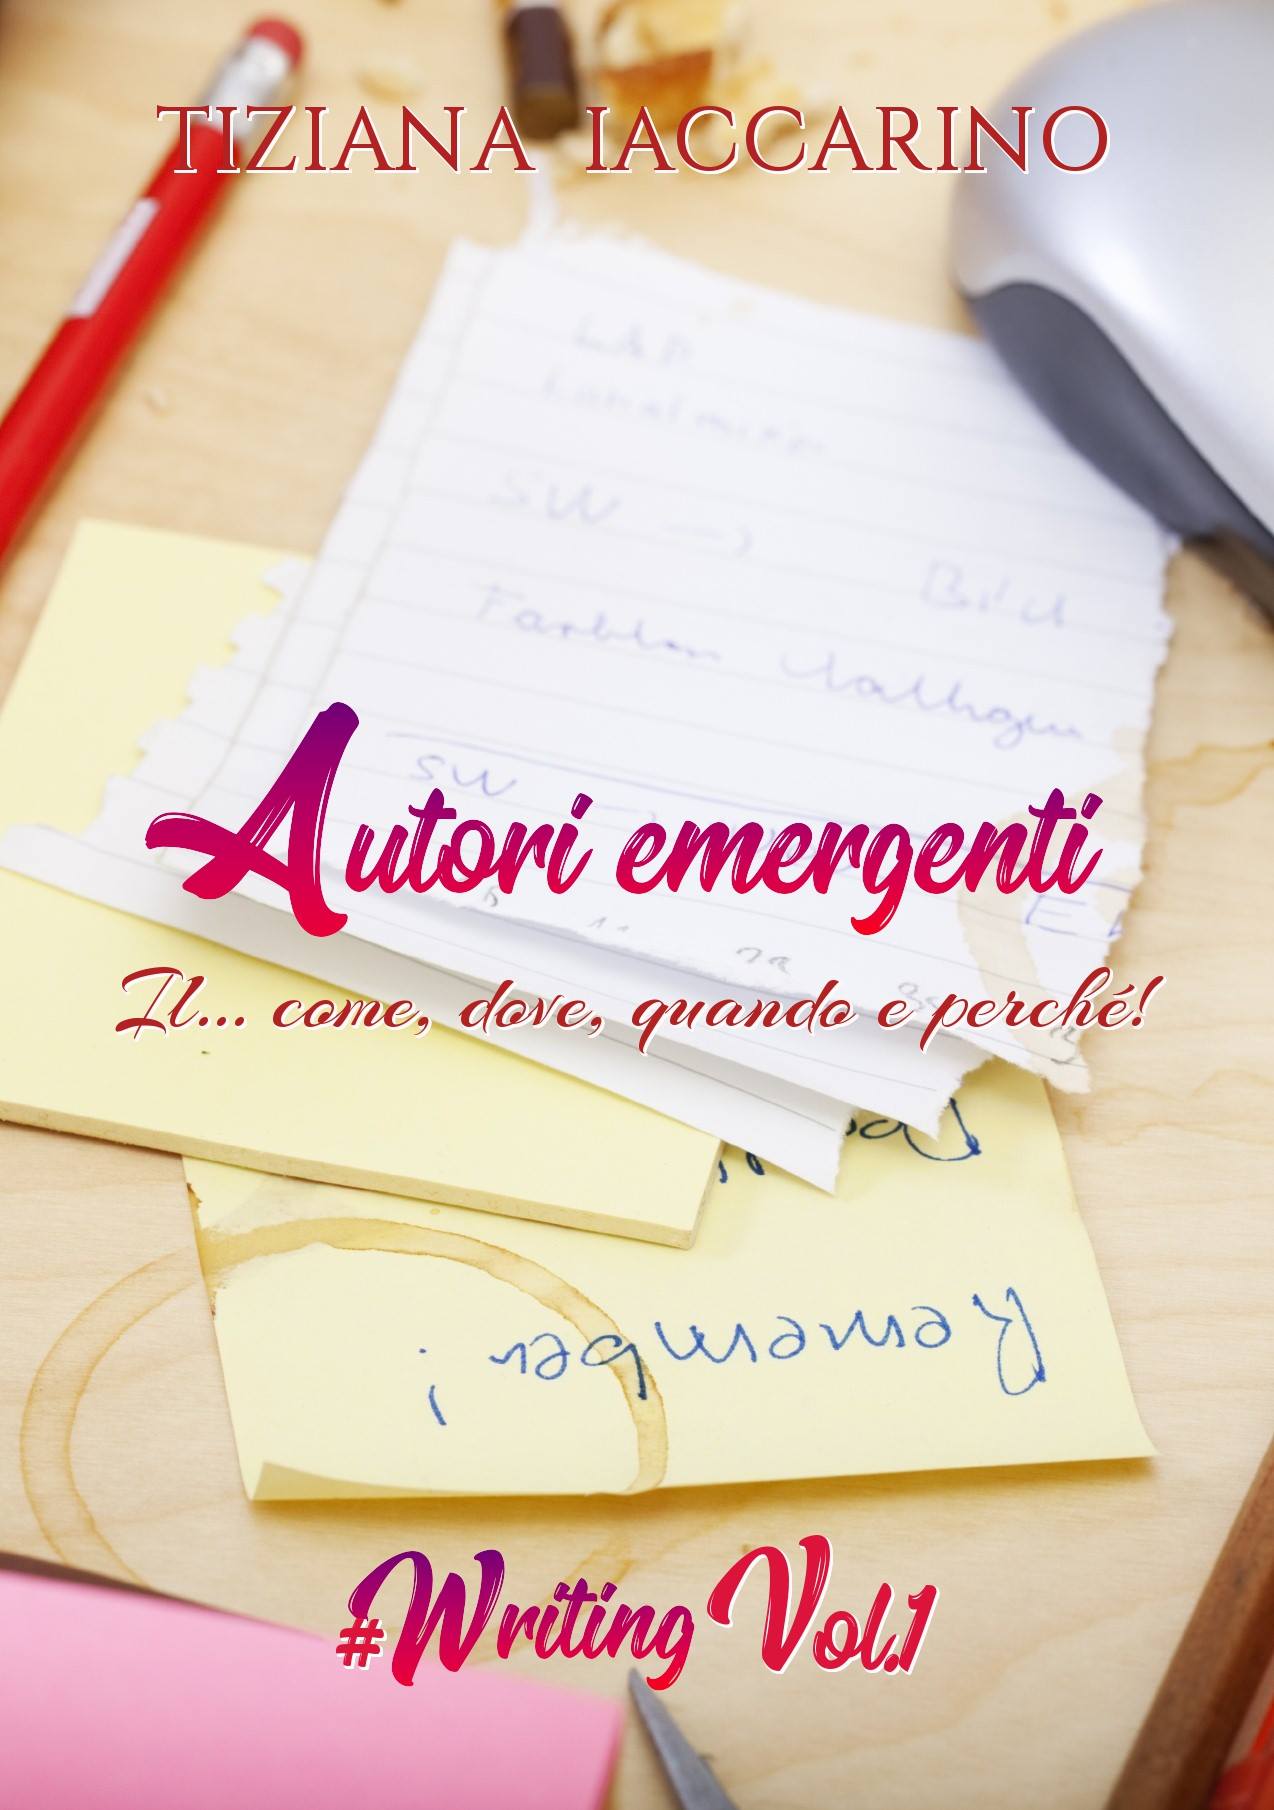 TIZIANA IACCARINO
SW
Bild
SW
Autori emergenti
Il... come, dove, quando e perché!
Remember!
#Writing Vol.1